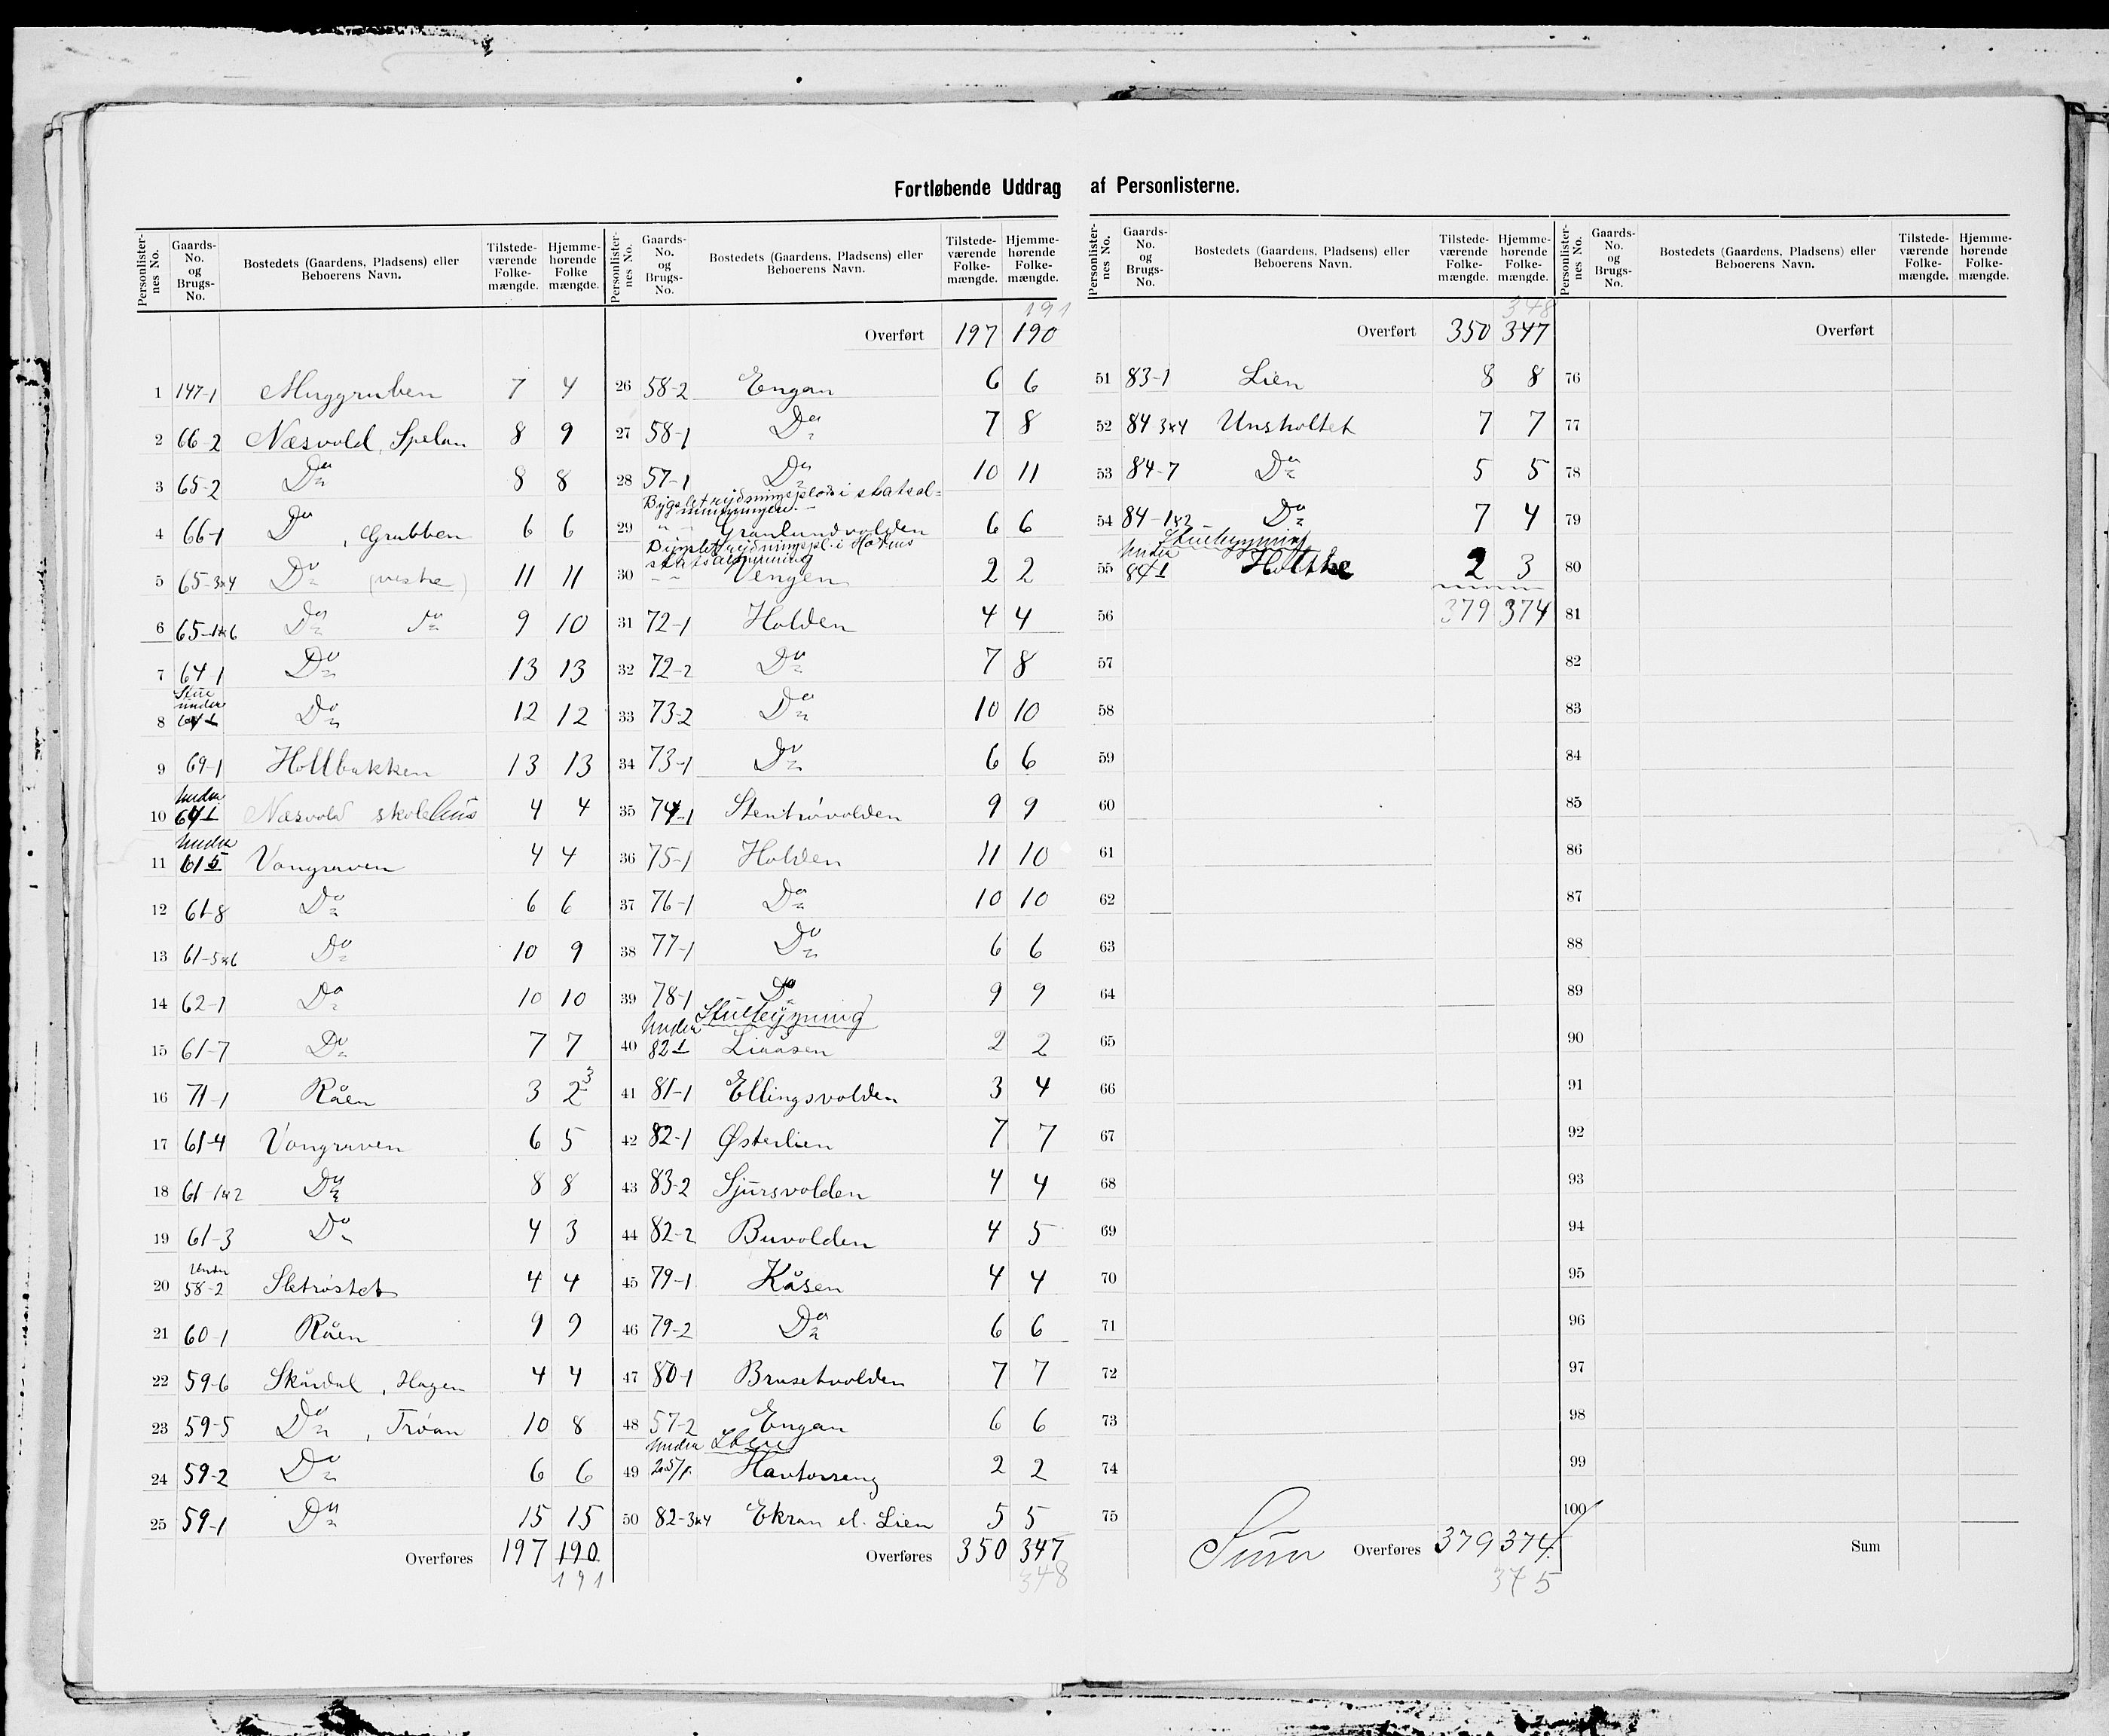 Fortløbende Uddrag af Personlisterne.
Personlister-nes No. Gaards-No. og Brugs-No. Bostedets (Gaardens, Pladsens) eller Beboerens Navn. Tilstede-værende Folke-mængde. Hjemme-hørende Folke mængde.
1 147-1 Muggruben 7 4
2 66-2 Næsvold, Spelan 8 9
3 65-2 Do 8 8
4 66-1 Do, Grubben 6 6
5 65-3&4 Do (vestre) 11 11
6 65-1&6 Do do 9 10
7 64-1 Do 13 13
Stue under
8 64-1 Do 12 12
9 69-1 Hollbakken 13 13
Under
10 64 1 Næsvold skolehus 4 4
Under
11 61 5 Vongraven 4 4
12 61-8 Do 6 6
13 61-5&6 Do 10 9
14 62-1 Do 10 10
15 61-7 Do 7 7
16 71-1 Råen 3 2 3
17 61-4 Vongraven 6 5
18 61-1&2 Do 8 8
19 61-3 Do 4 3
Under
20 58-2 Sletrøstet 4 4
21 60-1 Råen 9 9
22 59-6 Skårdal, Hagen 4 4
23 59-5 Do, Trøan 10 8
24 59-2 Do 6 6
25 59-1 Do 15 15
Overføres 197 190
191
Personlister-nes No. Gaards-No. og Brugs-No. Bostedets (Gaardens, Pladsens) eller Beboerens Navn. Tilstede-værende Folke-mængde. Hjemme-hørende Folke-mængde.
191
Overført 197 190
26 58-2 Engan 6 6
27 58-1 Do 7 8
28 57-1 Do 10 11
Bygslet rydningsplads i statsal-
mindingen.
29 " - Grønlundvolden 6 6
rydningspl. i
statsalminding
30 - - Vengen 2 2
31 72-1 Holden 4 4
32 72-2 Do 7 8
33 73-2 Do 10 10
34 73-1 Do 6 6
35 74-1 Stentrøvolden 9 9
36 75-1 Holden 11 10
37 76-1 Do 10 10
38 77-1 Do 6 6
39 78-1 Do 9 9
Under Stuebygning
40 82 1 Liaåsen 2 2
41 81-1 Ellingsvolden 3 4
42 82-1 Østerlien 7 7
43 83-2 Sjursvolden 4 4
44 82-2 Buvolden 4 5
45 79-1 Kåsen 4 4
46 79-2 Do 6 6
47 80-1 Brusetvolden 7 7
48 57-2 Engan 6 6
Under Stue
49 Havtorreng 2 2
50 82-3&4 Ekran el. Lien 5 5
Overføres 350 347
348
Personlister-nes No. Gaards-No. og Brugs-No. Bostedets (Gaardens, Pladsens) eller Beboerens Navn. Tilstede-værende Folke-mængde. Hjemme-hørende Folke-mængde.
348
Overført 350 347
51 83-1 Lien 8 8
52 84-3&4 Unsholtet 7 7
53 84-7 Do 5 5
54 84-1&2 Do 7 4
Under Stuebygning
55 84 1 2 3
56 379 374
57
58
59
60
61
62
63
64
65
66
67
68
69
70
71
72
73
74
75
Sum Overføres 379 374
375
Personlister-nes No. Gaards-No. og Brugs-No. Bostedets (Gaardens, Pladsens) eller Beboerens Navn. Tilstede-værende Folke-mængde. Hjemme-hørende Folke-mængde.
Overført
76
77
78
79
80
81
82
83
84
85
86
87
88
89
90
91
92
93
94
95
96
97
98
99
100
Sum